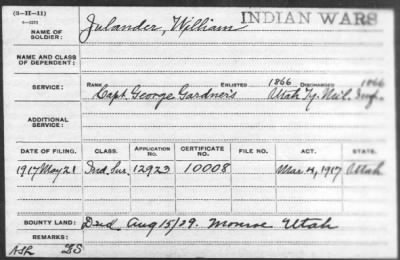 (3-II-11)
INDIAN WARS
NAME OF SOLDIER: Julander, William
NAME AND CLASS OF DEPENDENT:
SERVICE: RANK ENLISTED 1866 DISCHARGED 1866
Capt. George Gardner's Utah Ty. Mil. Inf.
ADDITIONAL SERVICE:
DATE OF FILING. CLASS. APPLICATION NO. CERTIFICATE NO. FILE NO. ACT. STATE.
1917 May 21 Ind. Sur. 12923 10008 Mar. 4, 1917 Utah
BOUNTY LAND: Died Aug 15/09. Monroe Utah
REMARKS: